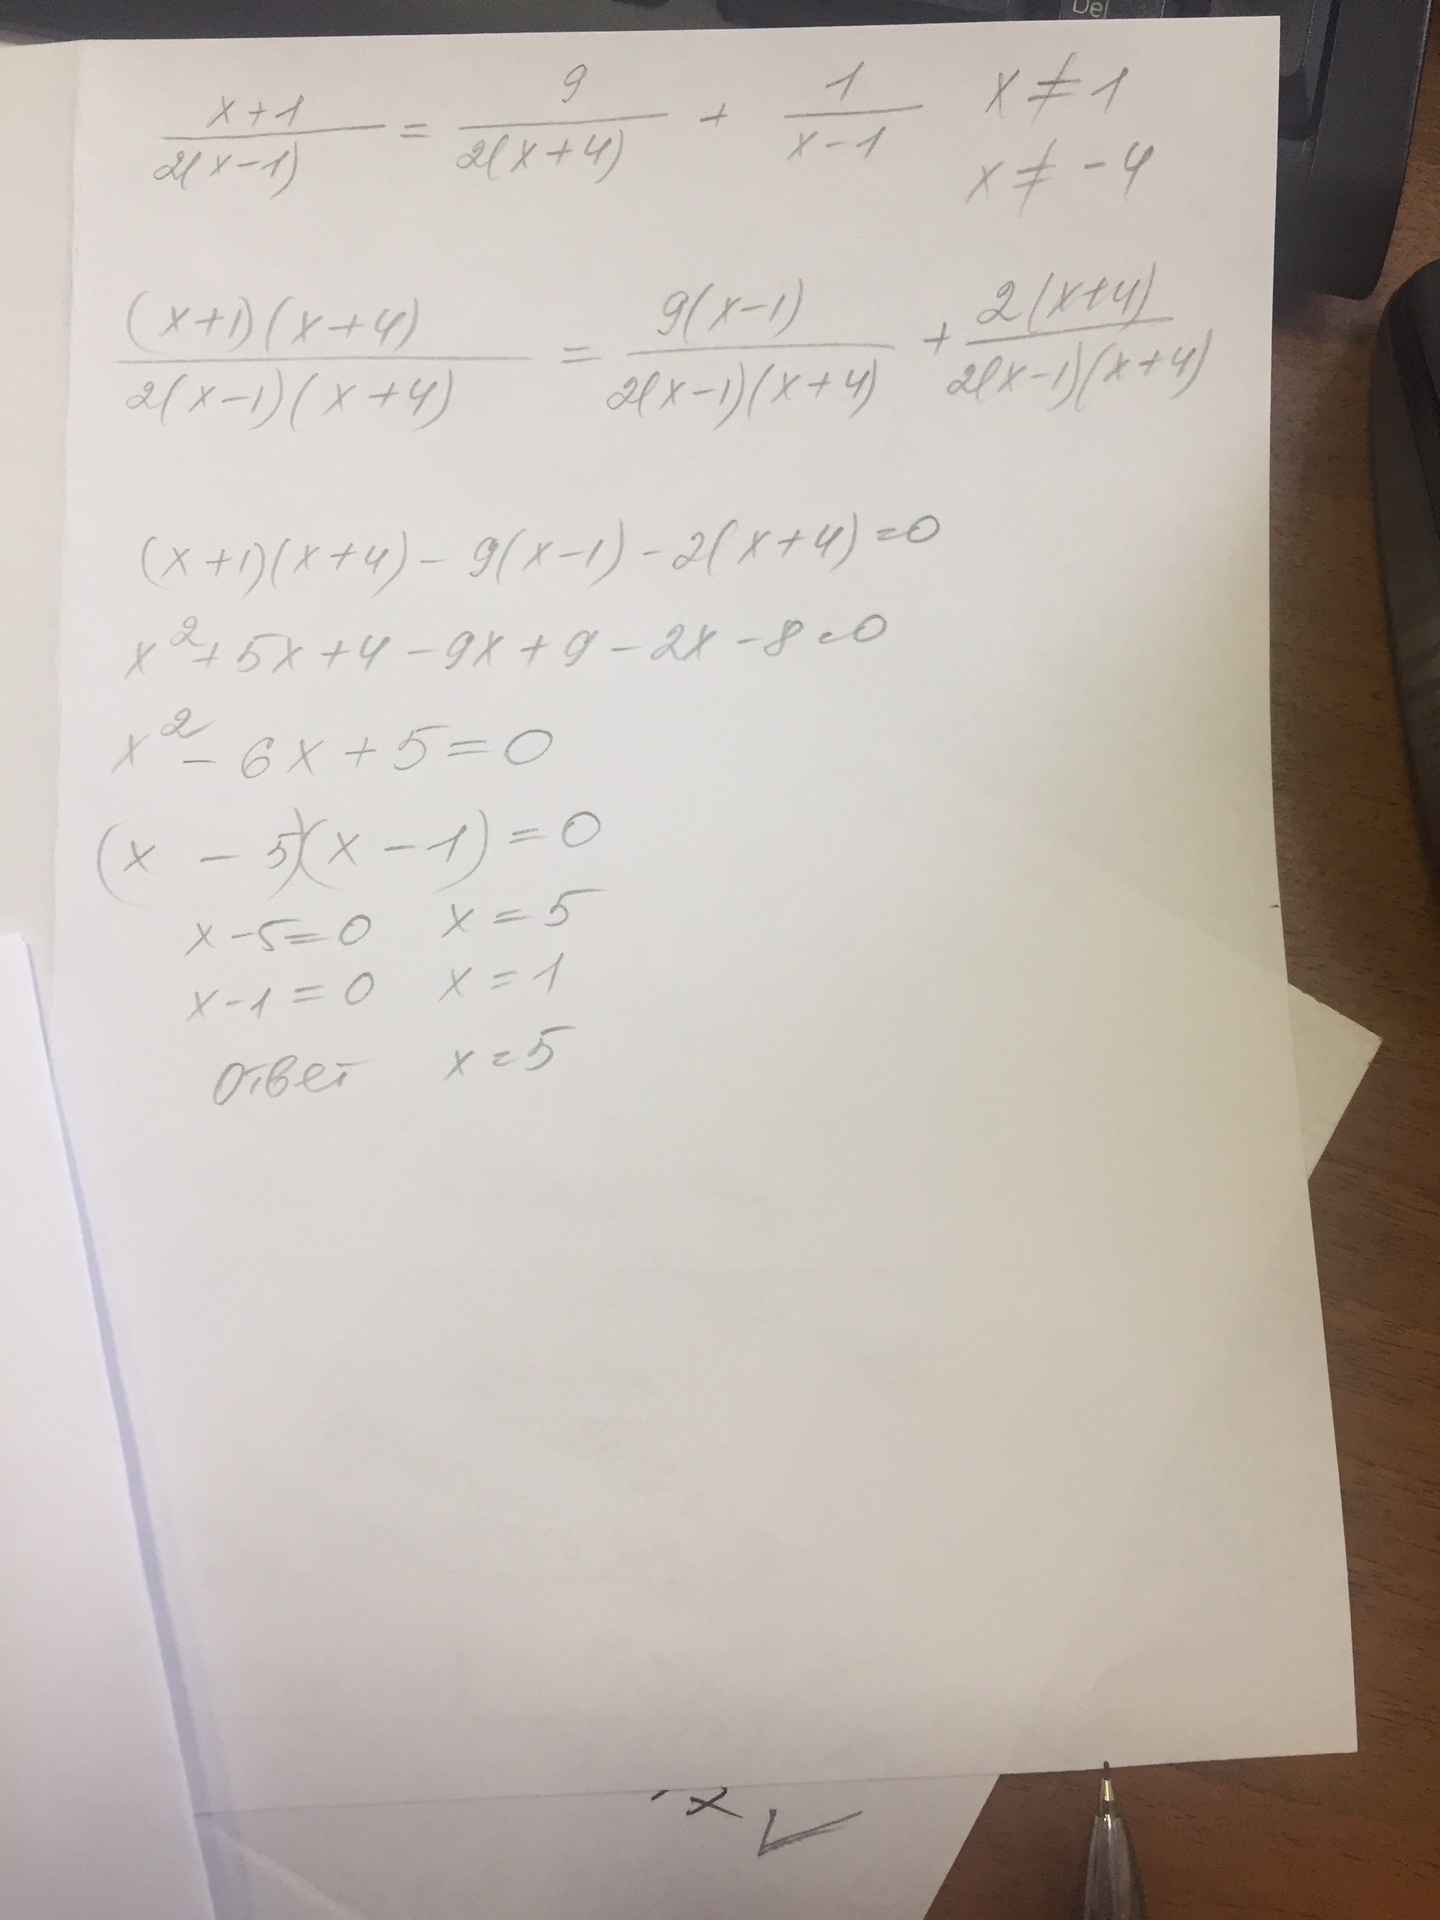 Del
x+1/2(x-1) = 9/2(x+4) + 1/x-1 x≠1
x≠-4
(x+1)(x+4)/2(x-1)(x+4) = 9(x-1)/2(x-1)(x+4) + 2(x+4)/2(x-1)(x+4)
(x+1)(x+4)-9(x-1)-2(x+4)=0
x²+5x+4-9x+9-2x-8=0
x²-6x+5=0
(x-5)(x-1)=0
x-5=0 x=5
x-1=0 x=1
Ответ x=5